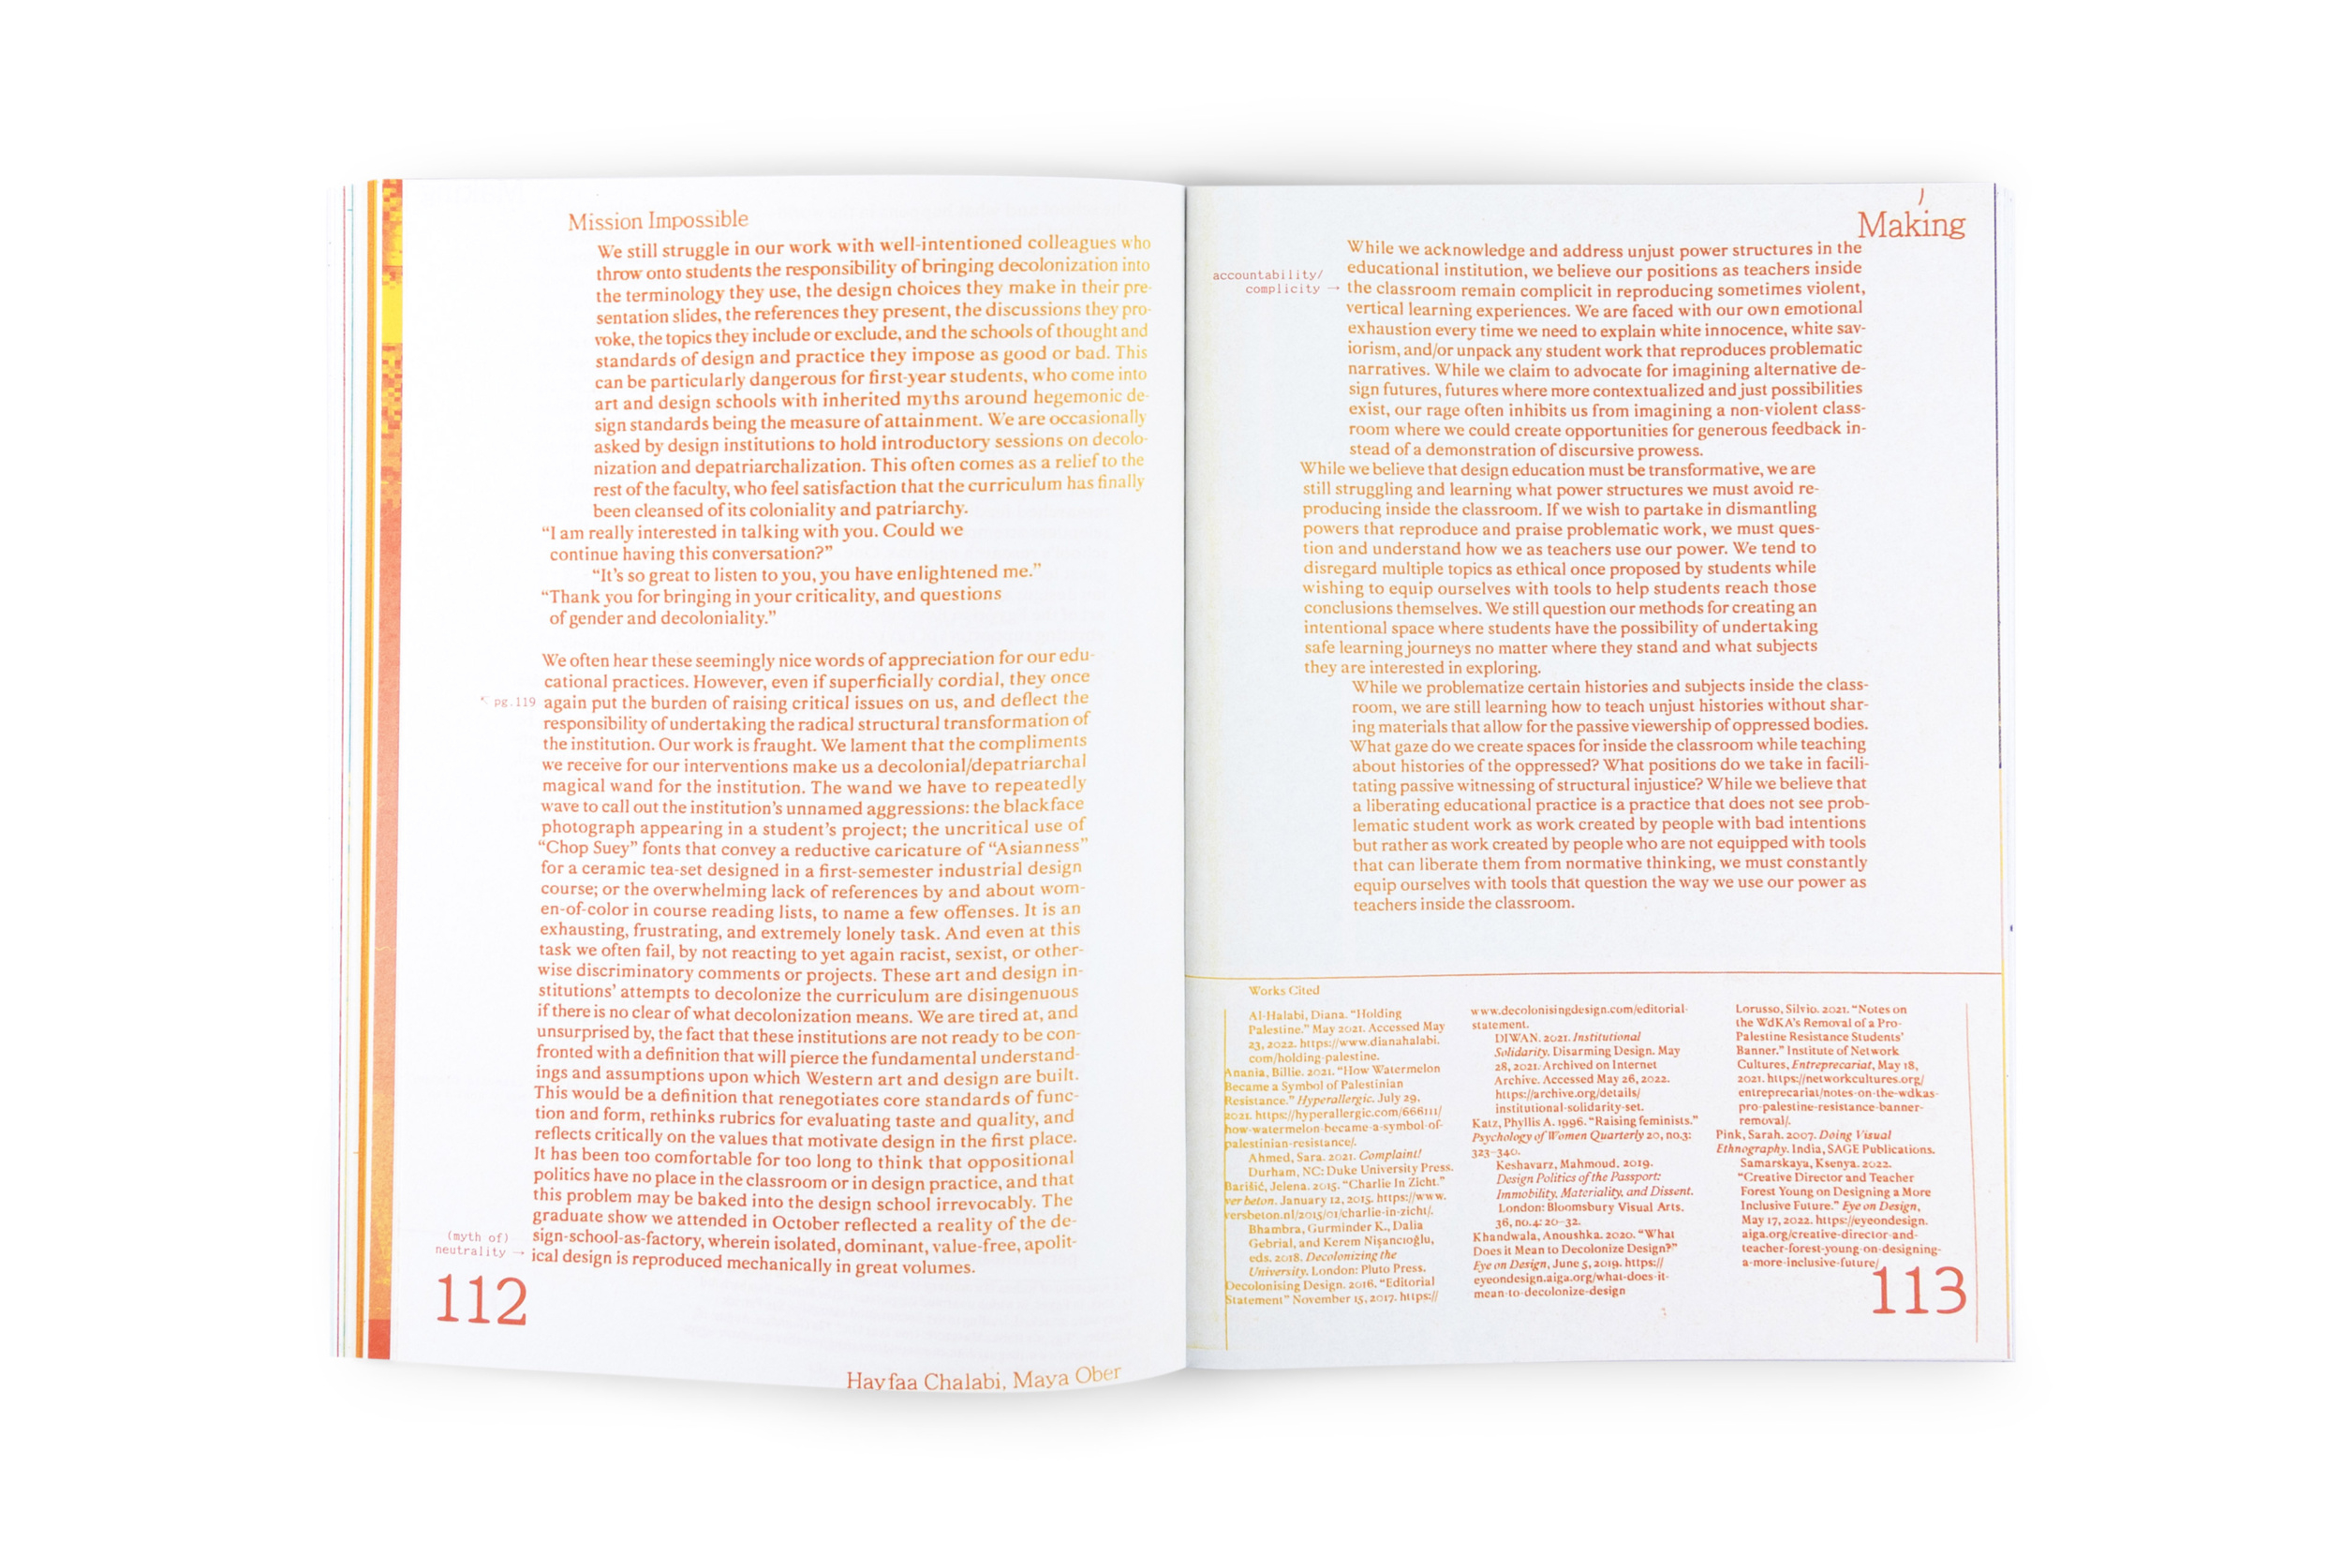 Mission Impossible
We still struggle in our work with well-intentioned colleagues who
throw onto students the responsibility of bringing decolonization into
the terminology they use, the design choices they make in their pre-
sentation slides, the references they present, the discussions they pro-
voke, the topics they include or exclude, and the schools of thought and
standards of design and practice they impose as good or bad. This
can be particularly dangerous for first-year students, who come into
art and design schools with inherited myths around hegemonic de-
sign standards being the measure of attainment. We are occasionally
asked by design institutions to hold introductory sessions on decolo-
nization and depatriarchalization. This often comes as a relief to the
rest of the faculty, who feel satisfaction that the curriculum has finally
been cleansed of its coloniality and patriarchy.
“I am really interested in talking with you. Could we
continue having this conversation?”
“It’s so great to listen to you, you have enlightened me.”
“Thank you for bringing in your criticality, and questions
of gender and decoloniality.”
We often hear these seemingly nice words of appreciation for our edu-
cational practices. However, even if superficially cordial, they once
↖ pg.119 again put the burden of raising critical issues on us, and deflect the
responsibility of undertaking the radical structural transformation of
the institution. Our work is fraught. We lament that the compliments
we receive for our interventions make us a decolonial/depatriarchal
magical wand for the institution. The wand we have to repeatedly
wave to call out the institution’s unnamed aggressions: the blackface
photograph appearing in a student’s project; the uncritical use of
“Chop Suey” fonts that convey a reductive caricature of “Asianness”
for a ceramic tea-set designed in a first-semester industrial design
course; or the overwhelming lack of references by and about wom-
en-of-color in course reading lists, to name a few offenses. It is an
exhausting, frustrating, and extremely lonely task. And even at this
task we often fail, by not reacting to yet again racist, sexist, or other-
wise discriminatory comments or projects. These art and design in-
stitutions’ attempts to decolonize the curriculum are disingenuous
if there is no clear of what decolonization means. We are tired at, and
unsurprised by, the fact that these institutions are not ready to be con-
fronted with a definition that will pierce the fundamental understand-
ings and assumptions upon which Western art and design are built.
This would be a definition that renegotiates core standards of func-
tion and form, rethinks rubrics for evaluating taste and quality, and
reflects critically on the values that motivate design in the first place.
It has been too comfortable for too long to think that oppositional
politics have no place in the classroom or in design practice, and that
this problem may be baked into the design school irrevocably. The
graduate show we attended in October reflected a reality of the de-
(myth of)
sign-school-as-factory, wherein isolated, dominant, value-free, apolit-
neutrality → ical design is reproduced mechanically in great volumes.
112
Hayfaa Chalabi, Maya Ober
Making
While we acknowledge and address unjust power structures in the
accountability/
educational institution, we believe our positions as teachers inside
complicity → the classroom remain complicit in reproducing sometimes violent,
vertical learning experiences. We are faced with our own emotional
exhaustion every time we need to explain white innocence, white sav-
iorism, and/or unpack any student work that reproduces problematic
narratives. While we claim to advocate for imagining alternative de-
sign futures, futures where more contextualized and just possibilities
exist, our rage often inhibits us from imagining a non-violent class-
room where we could create opportunities for generous feedback in-
stead of a demonstration of discursive prowess.
While we believe that design education must be transformative, we are
still struggling and learning what power structures we must avoid re-
producing inside the classroom. If we wish to partake in dismantling
powers that reproduce and praise problematic work, we must ques-
tion and understand how we as teachers use our power. We tend to
disregard multiple topics as ethical once proposed by students while
wishing to equip ourselves with tools to help students reach those
conclusions themselves. We still question our methods for creating an
intentional space where students have the possibility of undertaking
safe learning journeys no matter where they stand and what subjects
they are interested in exploring.
While we problematize certain histories and subjects inside the class-
room, we are still learning how to teach unjust histories without shar-
ing materials that allow for the passive viewership of oppressed bodies.
What gaze do we create spaces for inside the classroom while teaching
about histories of the oppressed? What positions do we take in facili-
tating passive witnessing of structural injustice? While we believe that
a liberating educational practice is a practice that does not see prob-
lematic student work as work created by people with bad intentions
but rather as work created by people who are not equipped with tools
that can liberate them from normative thinking, we must constantly
equip ourselves with tools that question the way we use our power as
teachers inside the classroom.
Works Cited
Al-Halabi, Diana. “Holding
Palestine.” May 2021. Accessed May
23, 2022. https://www.dianahalabi.
com/holding-palestine.
Anania, Billie. 2021. “How Watermelon
Became a Symbol of Palestinian
Resistance.” Hyperallergic. July 29,
2021. https://hyperallergic.com/666111/
how-watermelon-became-a-symbol-of-
palestinian-resistance/.
Ahmed, Sara. 2021. Complaint!
Durham, NC: Duke University Press.
Barišić, Jelena. 2015. “Charlie In Zicht.”
ver beton. January 12, 2015. https://www.
versbeton.nl/2015/01/charlie-in-zicht/.
Bhambra, Gurminder K., Dalia
Gebrial, and Kerem Nişancıoğlu,
eds. 2018. Decolonizing the
University. London: Pluto Press.
Decolonising Design. 2016. “Editorial
Statement” November 15, 2017. https://
www.decolonisingdesign.com/editorial-
statement.
DIWAN. 2021. Institutional
Solidarity. Disarming Design. May
28, 2021. Archived on Internet
Archive. Accessed May 26, 2022.
https://archive.org/details/
institutional-solidarity-set.
Katz, Phyllis A. 1996. “Raising feminists.”
Psychology of Women Quarterly 20, no.3:
323–340.
Keshavarz, Mahmoud. 2019.
Design Politics of the Passport:
Immobility, Materiality, and Dissent.
London: Bloomsbury Visual Arts.
36, no.4: 20–32.
Khandwala, Anoushka. 2020. “What
Does it Mean to Decolonize Design?”
Eye on Design, June 5, 2019. https://
eyeondesign.aiga.org/what-does-it-
mean-to-decolonize-design
Lorusso, Silvio. 2021. “Notes on
the WdKA’s Removal of a Pro-
Palestine Resistance Students’
Banner.” Institute of Network
Cultures, Entreprecariat, May 18,
2021. https://networkcultures.org/
entreprecariat/notes-on-the-wdkas-
pro-palestine-resistance-banner-
removal/.
Pink, Sarah. 2007. Doing Visual
Ethnography. India, SAGE Publications.
Samarskaya, Ksenya. 2022.
“Creative Director and Teacher
Forest Young on Designing a More
Inclusive Future.” Eye on Design,
May 17, 2022. https://eyeondesign.
aiga.org/creative-director-and-
teacher-forest-young-on-designing-
a-more-inclusive-future/
113